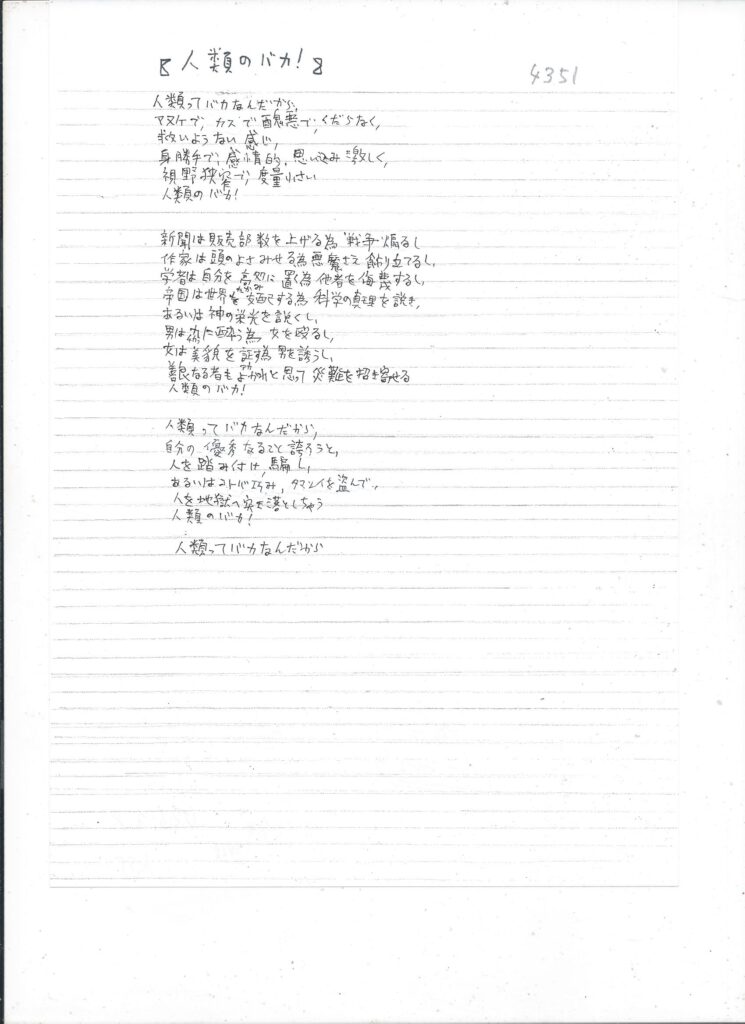 〖人類のバカ!〗
4351
人類ってバカなんだから、
マヌケで、カスで醜悪で、くだらなく、
救いようない感じ、
身勝手で、感情的、思い込み激しく、
視野狭窄で、度量小さい
人類のバカ!
新聞は販売部数を上げる為戦争煽るし
作家は頭のよさみせる為悪魔さえ飾り立てるし、
学者は自分を高処に置く為他者を侮蔑するし、
高み
帝国は世界を支配する為科学の真理を説き、
あるいは神の栄光を説くし、
男は に酔う為、女を殴るし、
女は美貌を証す為男を誘うし、
善良なる者もよかれと思って災難を招き寄せる
人類のバカ!
人類ってバカなんだから、
自分の優秀なること誇ろうと、
人を踏み付け、騙し、
あるいはコトバ巧み、タマシイを盗んで、
人を地獄へ突き落としちゃう
人類のバカ!
人類ってバカなんだから